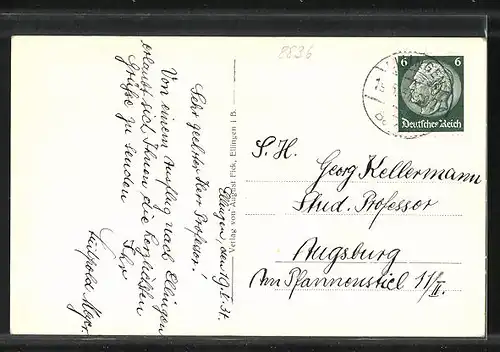 2836
Ellingen, den 19.5.37.
Sehr geehrter Herr Professor!
Von einem Ausflug nach Ellingen
erlaubt sich Ihnen die herzlichsten
Grüße zu senden
Ihr
Luitpold
Verlag von August Fick, Ellingen i. B.
6 6
Deutsches Reich
S. H.
Georg Kellermann
Stud. Professor
Augsburg
Am Pfannenstiel 11/II.